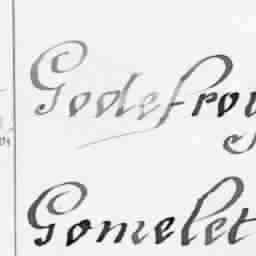 Godefroy
Gomelet